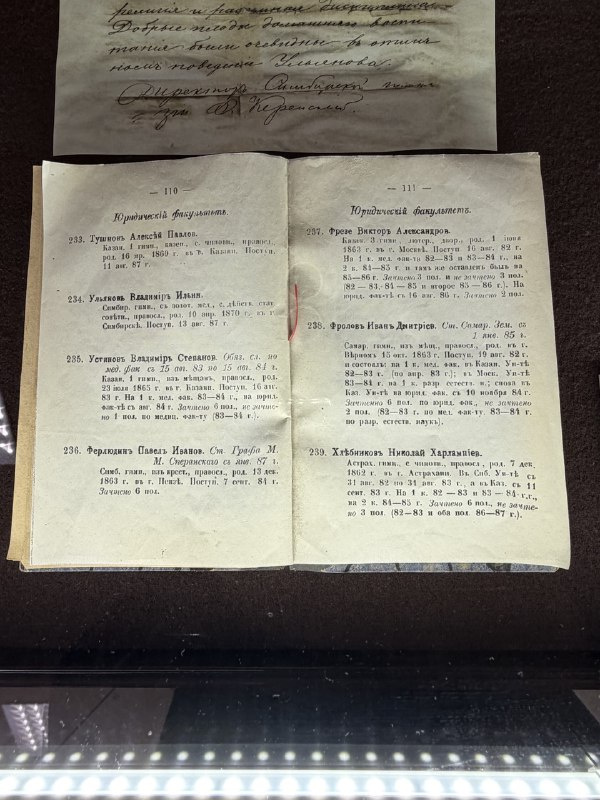 религія и разумная дисциплина.
Добрые плоды домашняго воспи
танія были очевидны въ отлич
номъ поведеніи Ульянова.
Директоръ Симбирской гимна
зіи Ѳ. Керенскій.
— 110 —
Юридическій факультетъ.
233. Тушновъ Алексѣй Павлов.
Казан. 1 гимн., казен., с. чиновн., правосл.,
род. 16 яр. 1869 г. въ г. Казани. Поступ.
11 авг. 87 г.
234. Ульяновъ Владиміръ Ильин.
Симбир. гимн., съ золот. мед., с. дѣйств. стат.
совѣтн., правосл., род. 10 апр. 1870 г. въ г.
Симбирскѣ. Поступ. 13 авг. 87 г.
235. Устиновъ Владиміръ Степанов. Обяз. сл. по
мед. фак. съ 15 авг. 83 по 15 авг. 84 г.
Казан. 1 гимн., изъ мѣщанъ, правосл., род.
23 іюля 1865 г. въ г. Казани. Поступ. 16 авг.
83 г. На 1 к. мед. фак. 83—84 г., на юрид.
фак-тѣ съ авг. 84 г. Зачтено 6 пол., не зачте-
но 1 пол. по медиц. фак-ту (83—84 г.).
236. Ферлюдинъ Павелъ Иванов. Ст. Графа М.
М. Сперанскаго съ янв. 87 г.
Симб. гимн., изъ крест., правосл., род. 13 дек.
1863 г. въ г. Пензѣ. Поступ. 7 сент. 84 г.
Зачтено 6 пол.
— 111 —
Юридическій факультетъ.
237. Фрезе Викторъ Александров.
Казан. 3 гимн., лютер., двор., род. 1 іюня
1863 г. въ г. Москвѣ. Поступ. 16 авг. 82 г.
На 1 к. мед. фак-та 82—83 и 83—84 г., на
2 к. 84—85 г. и тамъ же оставленъ былъ на
85—86 г. Зачтено 3 пол. и не зачтено 3 пол.
(82—83, 84—85 и второе 85—86 г.). На
юрид. фак-тѣ съ 16 авг. 86 г. Зачтено 2 пол.
238. Фроловъ Иванъ Дмитріев. Ст. Самар. Зем. съ
1 янв. 85 г.
Самар. гимн., изъ мѣщ., правосл., род. въ г.
Вѣрномъ 15 окт. 1863 г. Поступ. 19 авг. 82 г.
и состоялъ: на 1 к. мед. фак. въ Казан. Ун-тѣ
82—83 г. (по апр. 83 г.); въ Моск. Ун-тѣ
83—84 г. на 1 к. разр. естеств. н.; снова въ
Каз. Ун-тѣ на юрид. фак. съ 10 ноября 84 г.
Зачтено 6 пол. по юрид. фак., не зачтено
2 пол. (82—83 г. по мед. фак-ту, 83—84 г.
по разр. естеств. наук).
239. Хлѣбниковъ Николай Харлампіев.
Астрах. гимн., с. чиновн., правосл., род. 7 дек.
1862 г. въ г. Астрахани. Въ Спб. Ун-тѣ съ
31 авг. 82 по 31 авг. 83 г., а въ Каз. съ 11
сент. 83 г. На 1 к. 82—83 и 83—84 г.г.,
на 2 к. 84—85 г. Зачтено 6 пол., не зачте-
но 3 пол. (82—83 и оба пол. 86—87 г.).